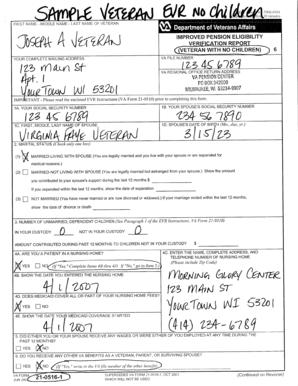 SAMPLE VETERAN EVR NO CHILDREN
FIRST NAME - MIDDLE NAME - LAST NAME OF VETERAN
JOSEPH A VETERAN
Department of Veterans Affairs
IMPROVED PENSION ELIGIBILITY
VERIFICATION REPORT
(VETERAN WITH NO CHILDREN) 6
YOUR COMPLETE MAILING ADDRESS
123 Main St
Apt. 1
Your Town WI 53201
VA FILE NUMBER
123 45 6789
VA REGIONAL OFFICE RETURN ADDRESS
VA PENSION CENTER
MILWAUKEE, WI
IMPORTANT - Please read the enclosed EVR Instructions (VA Form 21-0510) prior to completing this form.
1A. YOUR SOCIAL SECURITY NUMBER
123 45 6789
1B. YOUR SPOUSE'S SOCIAL SECURITY NUMBER
234 56 7890
1C. FIRST, MIDDLE, LAST NAME OF SPOUSE
VIRGINIA FAYE VETERAN
1D. SPOUSE'S DATE OF BIRTH (Mo., day, yr.)
3/15/23
2. MARITAL STATUS (Check only one box)
(1) X MARRIED LIVING WITH SPOUSE (You are legally married and you live with your spouse or are separated for
medical reasons.)
(2) MARRIED NOT LIVING WITH SPOUSE (You are legally married but estranged from your spouse.) Show the amount
you contributed to your spouse's support during the last 12 months $
If you separated within the last 12 months, show the date of separation
(3) NOT MARRIED (You have never married or are now divorced or widowed.) If your marriage ended within the last 12 months,
show the date of divorce or death
3. NUMBER OF UNMARRIED, DEPENDENT CHILDREN (See Paragraph 1 of the EVR Instructions, VA Form 21-0510)
IN YOUR CUSTODY 0 NOT IN YOUR CUSTODY 0
AMOUNT CONTRIBUTED DURING PAST 12 MONTHS TO CHILDREN NOT IN YOUR CUSTODY $
4A. ARE YOU A PATIENT IN A NURSING HOME?
X YES NO (If "Yes," Complete Items 4B thru 4E. If "No," go to Item 5.)
4B. SHOW THE DATE YOU ENTERED THE NURSING HOME
4/1/2007
4C. DOES MEDICAID COVER ALL OR PART OF YOUR NURSING HOME FEES?
X YES NO
4D. SHOW THE DATE YOUR MEDICAID COVERAGE STARTED
4/1/2007
4E. ENTER THE NAME, COMPLETE ADDRESS, AND
TELEPHONE NUMBER OF NURSING HOME
(Please include Zip Code)
MORNING GLORY CENTER
123 MAIN ST
YOUR TOWN WI 53201
(414) 234-6789
5. DID EITHER YOU OR YOUR SPOUSE RECEIVE ANY WAGES OR WERE EITHER OF YOU EMPLOYED AT ANY TIME DURING THE
PAST 12 MONTHS?
YES X NO
6. DO YOU RECEIVE ANY OTHER VA BENEFITS AS A VETERAN, PARENT, OR SURVIVING SPOUSE?
YES X NO
VA FORM
21-0516-1
WHICH WILL NOT BE USED
(Continued on Reverse)